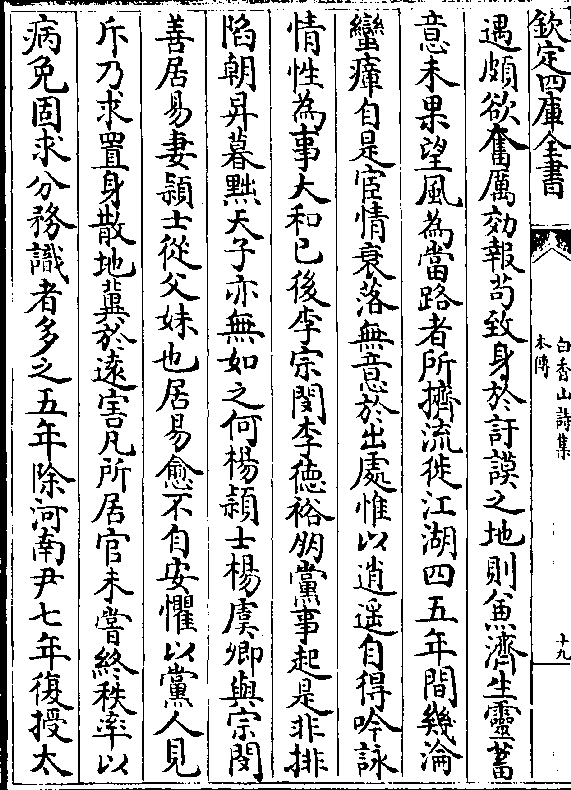 欽定四庫全書
白香山詩集
本傳
十九
遇頗欲奮厲効報茍致身於訏謨之地則兼濟生靈蓄
意未果望風為當路者所擠流徙江湖四五年間幾淪
蠻瘴自是宦情衰落無意於出處惟以逍遥自得吟詠
情性為事大和已後李宗閔李德裕朋黨事起是非排
陷朝昇暮黜天子亦無如之何楊頴士楊虞卿與宗閔
善居易妻頴士從父妹也居易愈不自安懼以黨人見
斥乃求置身散地冀於逺害凡所居官未嘗終秩率以
病免固求分務識者多之五年除河南尹七年復授太